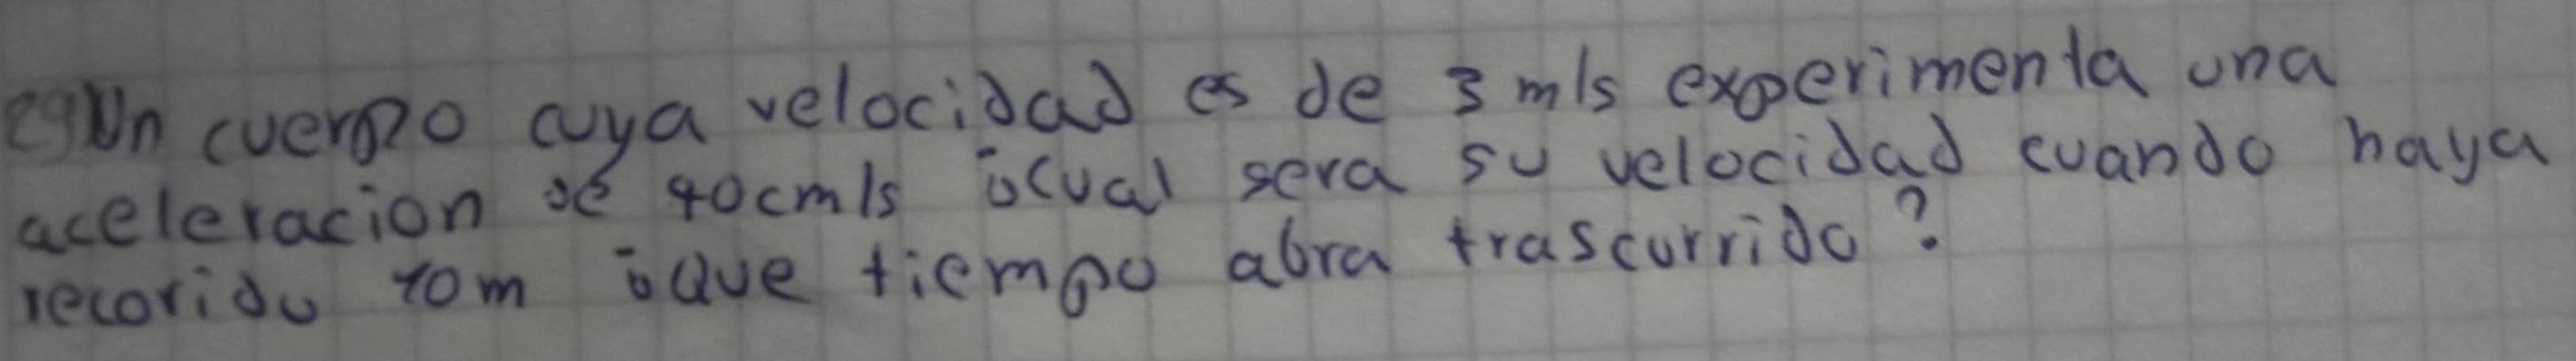 29 Un cuerpo cuya velocidad es de 3 m/s experimenta una
aceleracion de 40cm/s ¿cual sera su velocidad cuando haya
recorido 10m ¿que tiempo abra trascurrido?